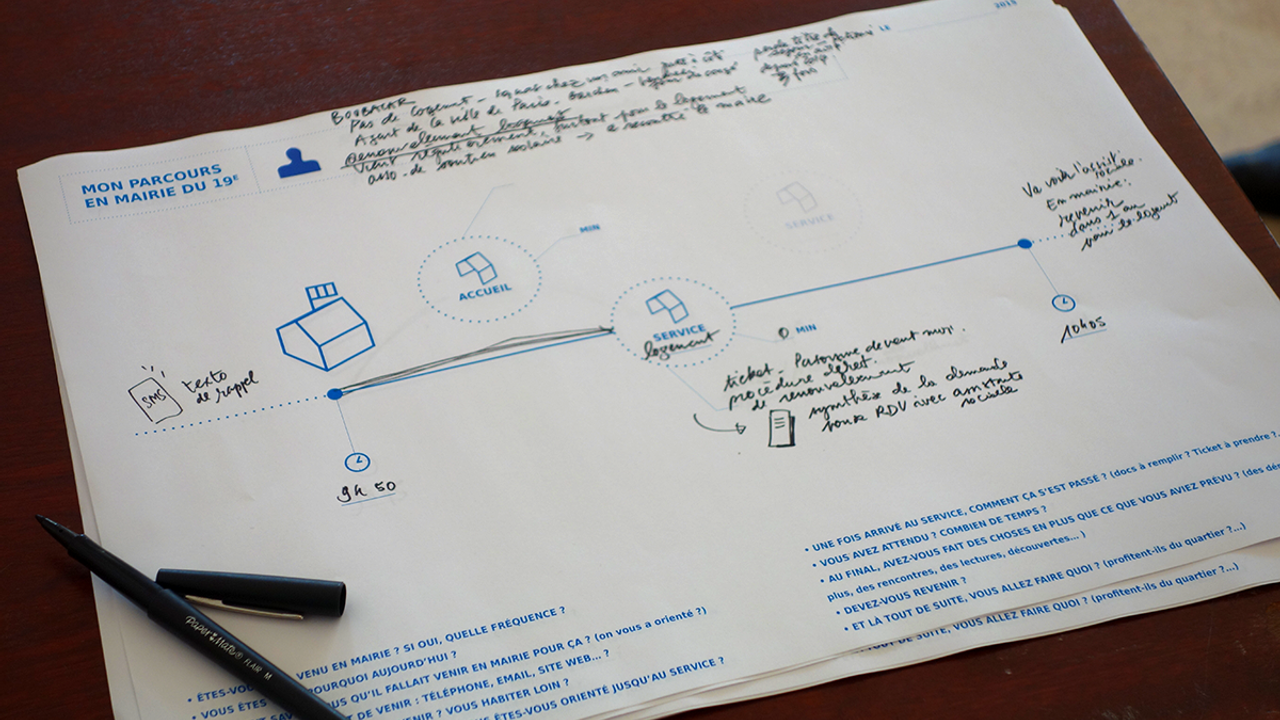 2015
LE
BOUBACAR
Pas de logement - squat chez un ami juste à côté
Agent de la ville de Paris. Gardien -
Renouvellement logement
Vient régulièrement, surtout pour le logement
asso. de soutien scolaire → a rencontré le maire
depuis 2017
3 fois
MON PARCOURS
EN MAIRIE DU 19E
Va voir l'assist.
sociale.
En mairie:
revenir
dans 1 an
pour le logement
SERVICE
MIN
ACCUEIL
SERVICE
logement
0 MIN
10h05
SMS
texto
de rappel
ticket - Personne devant moi.
procédure
de renouvellement
synthèse de la demande
RDV avec assistante
sociale
9h50
• UNE FOIS ARRIVÉ AU SERVICE, COMMENT ÇA S'EST PASSÉ ? (docs à remplir ? Ticket à prendre ?
• VOUS AVEZ ATTENDU ? COMBIEN DE TEMPS ?
• AU FINAL, AVEZ-VOUS FAIT DES CHOSES EN PLUS QUE CE QUE VOUS AVIEZ PRÉVU ? (des
plus, des rencontres, des lectures, découvertes... )
• DEVEZ-VOUS REVENIR ?
• ET LÀ TOUT DE SUITE, VOUS ALLEZ FAIRE QUOI ? (profitent-ils du quartier ?...)
TOUT DE SUITE, VOUS ALLEZ FAIRE QUOI ? (profitent-ils du quartier ?...)
• ÊTES-VOUS VENU EN MAIRIE ? SI OUI, QUELLE FRÉQUENCE ?
• VOUS ÊTES POURQUOI AUJOURD'HUI ?
QU'IL FALLAIT VENIR EN MAIRIE POUR ÇA ? (on vous a orienté ?)
DE VENIR : TÉLÉPHONE, EMAIL, SITE WEB... ?
? VOUS HABITER LOIN ?
ÊTES-VOUS ORIENTÉ JUSQU'AU SERVICE ?
Paper Mate® FLAIR M